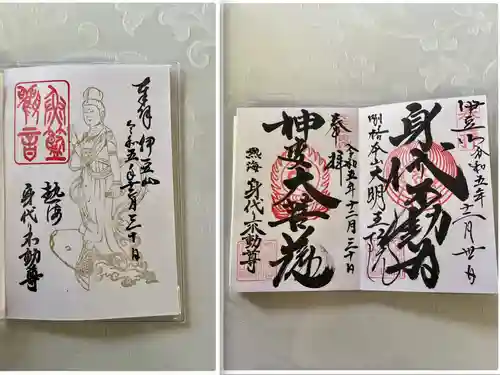 奉拝 伊豆山
令和五年十二月三十日
魚籃
觀音
熱海
身代り不動尊
奉拝
令和五年十二月三十日
神変大菩薩
熱海 身代り不動尊
伊豆山 令和五年
十二月 卅日
身代不動明
大明王院